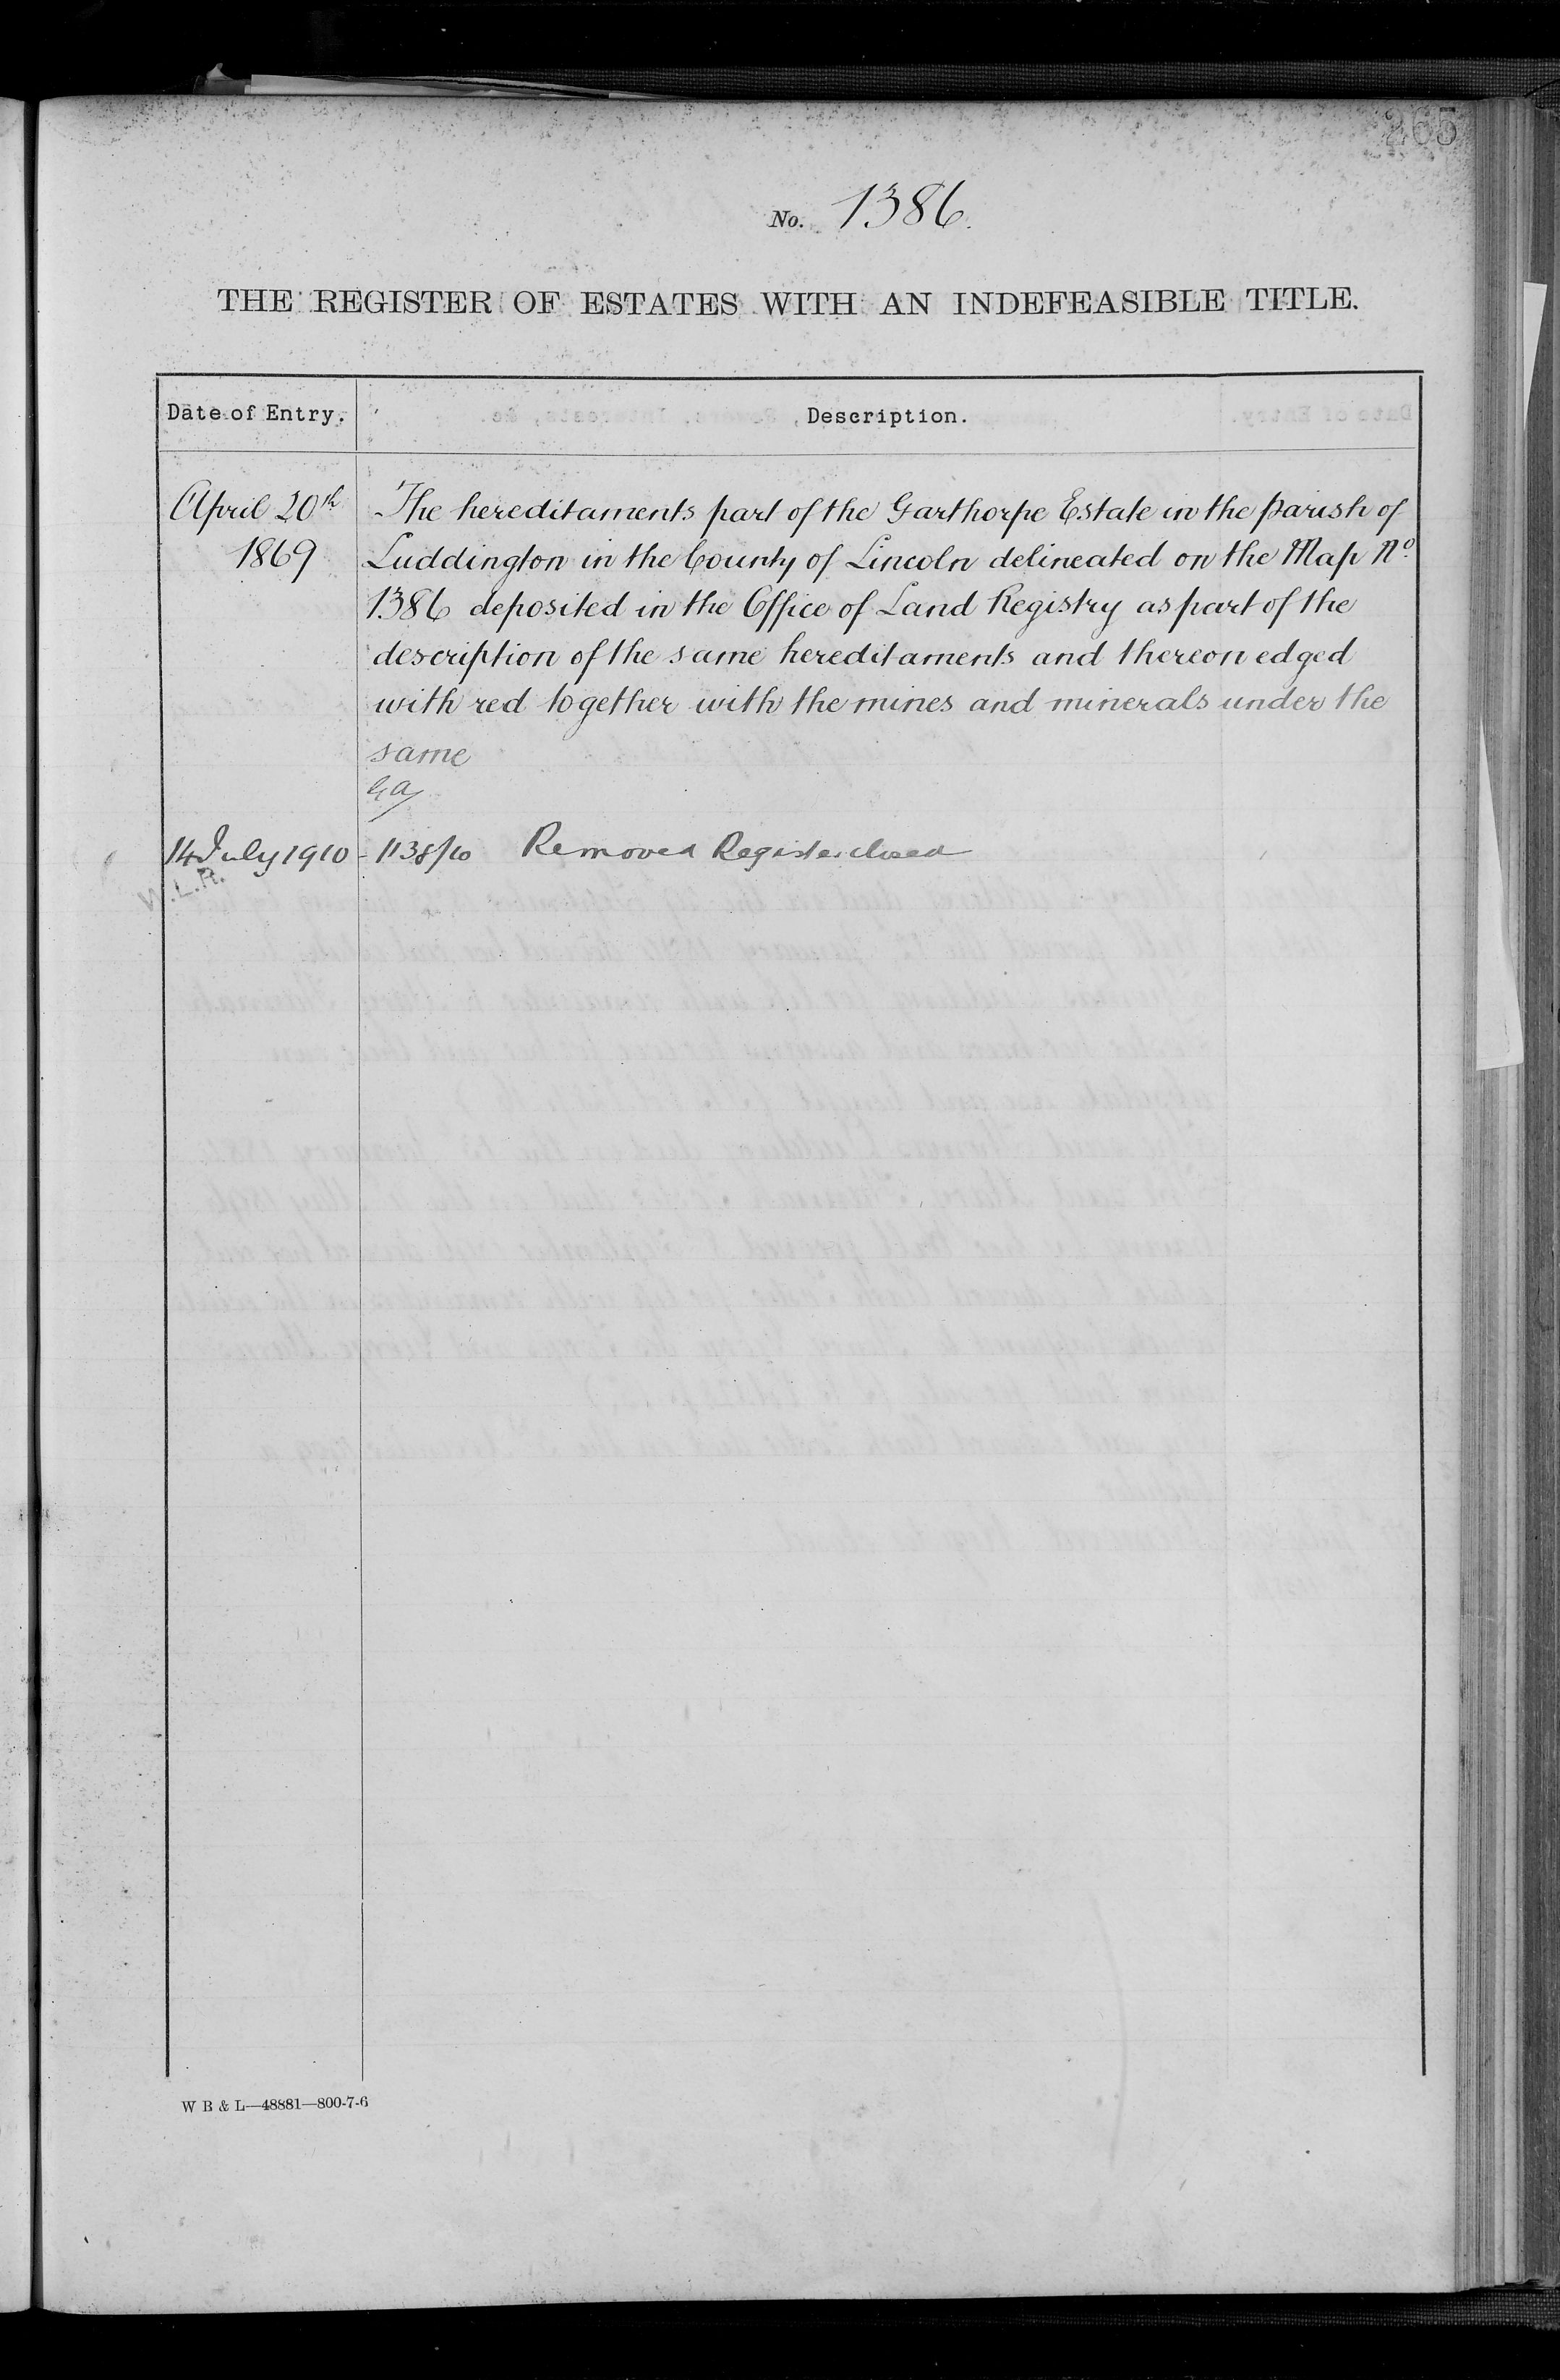 265
No. 1386.
THE REGISTER OF ESTATES WITH AN INDEFEASIBLE TITLE.
Date of Entry. Description.
April 20th The hereditaments part of the Garthorpe Estate in the parish of
1869 Luddington in the County of Lincoln delineated on the Map No.
1386 deposited in the Office of Land Registry as part of the
description of the same hereditaments and thereon edged
with red together with the mines and minerals under the
same
14 July 1910 - 1138/10 Removed Register closed
W.L.R.
W B & L—48881—800-7-6